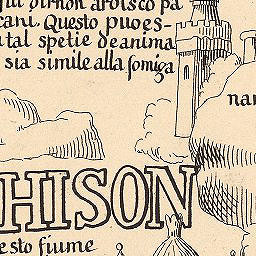 dirnon ardisco pa
cani. Questo puoes-
tal spetie de anima
sia simile alla fomiga
nar
HISON
esto fiume